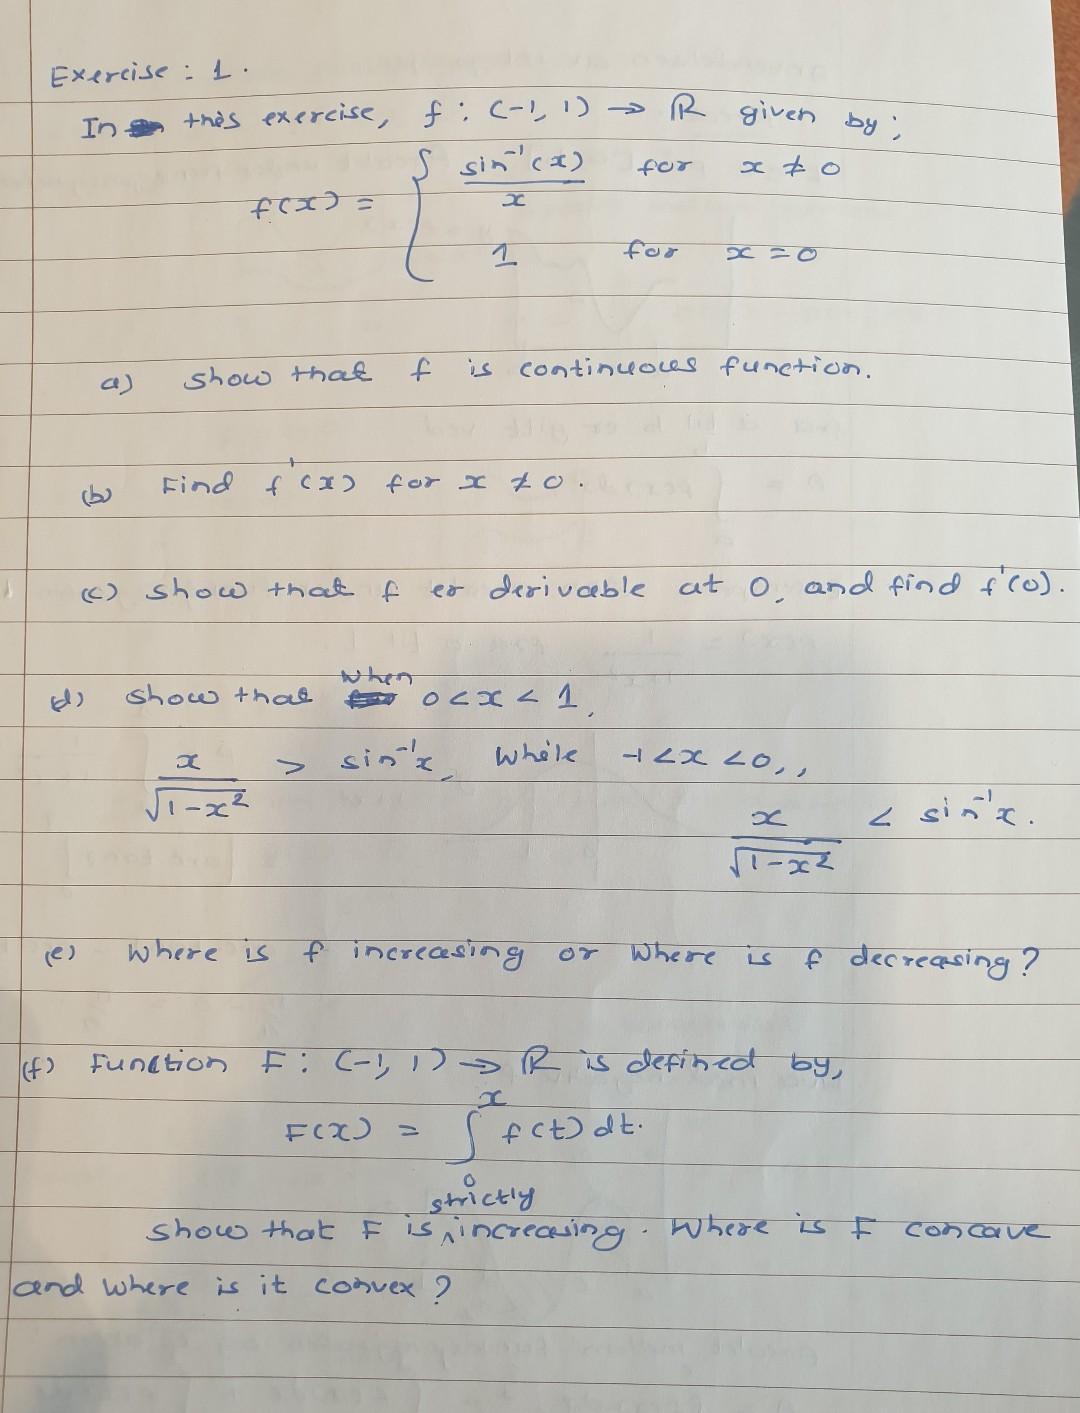 Exercise : 1.
In this exercise, f : (-1, 1) → ℝ given by ;
f(x) = { sin⁻¹(x) / x for x ≠ 0
1 for x = 0
a) show that f is continuous function.
(b) Find f'(x) for x ≠ 0.
(c) show that f er derivable at 0, and find f'(0).
(d) show that when 0 < x < 1,
x / √(1-x²) > sin⁻¹x, while -1 < x < 0, ,
x / √(1-x²) < sin⁻¹x.
(e) where is f increasing or where is f decreasing?
(f) Function F : (-1, 1) → ℝ is defined by,
F(x) = ∫₀ˣ f(t) dt.
show that F is strictly increasing. Where is F concave
and where is it convex ?